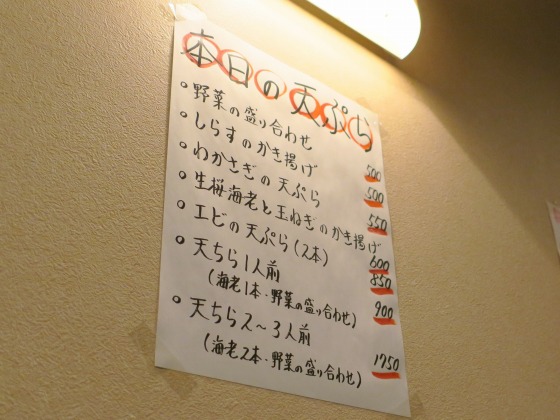 本日の天ぷら
野菜の盛り合わせ 500
しらすのかき揚げ 500
わかさぎの天ぷら 550
生桜海老と玉ねぎのかき揚げ 600
エビの天ぷら(2本) 850
天ちら1人前 900
(海老1本・野菜の盛り合わせ)
天ちら2~3人前 1750
(海老2本・野菜の盛り合わせ)